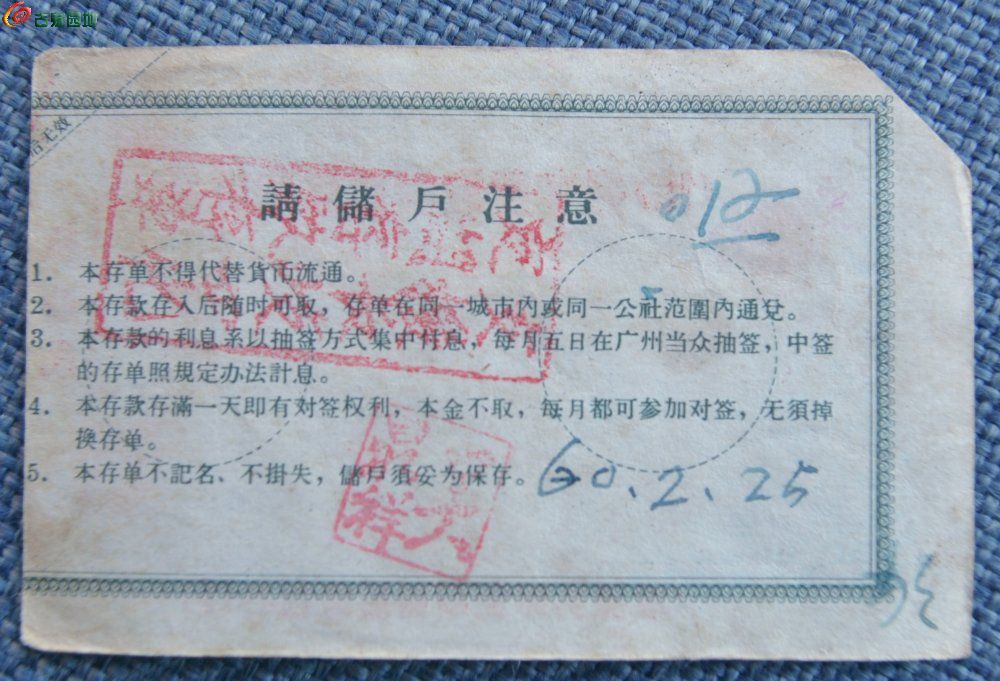 后无效
請儲戶注意
012
1. 本存单不得代替貨币流通。
2. 本存款存入后随时可取，存单在同一城市內或同一公社范圍內通兌。
3. 本存款的利息系以抽签方式集中付息，每月五日在广州当众抽签，中签
的存单照規定办法計息。
4. 本存款存滿一天即有对签权利，本金不取，每月都可参加对签，无須掉
換存单。
5. 本存单不記名、不掛失，儲戶須妥为保存。
60.2.25